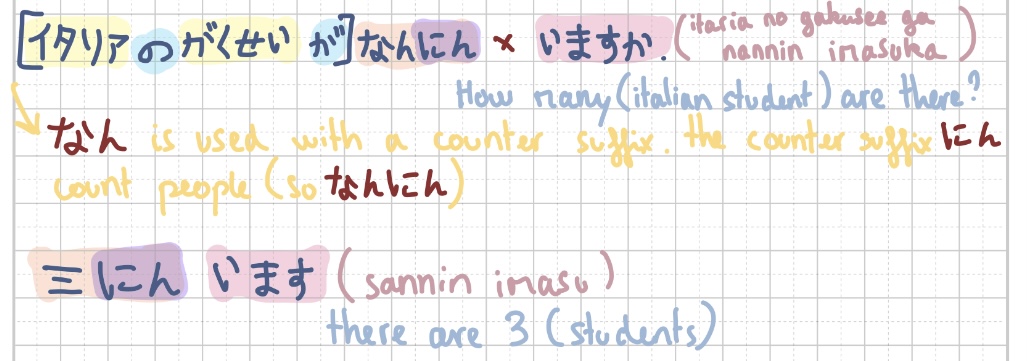 [イタリアのがくせいが]なんにん × いますか.(itaria no gakusee ga
nannin imasuka)
How many (italian student) are there?
なん is used with a counter suffix. the counter suffix にん
count people (so なんにん)
三にん います (sannin imasu)
there are 3 (students)